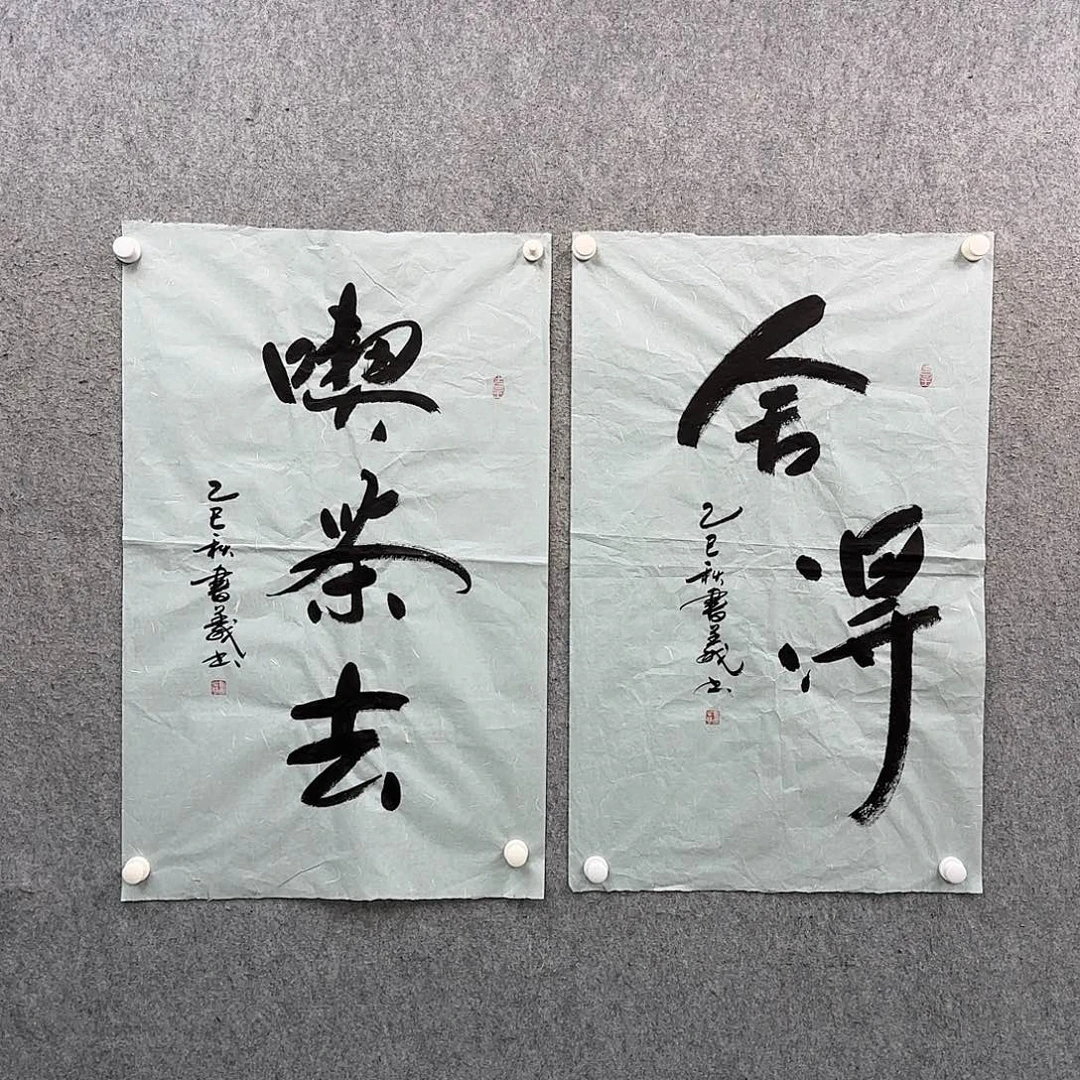 喫茶去
乙巳秋書義书
舍得
乙巳秋書義书